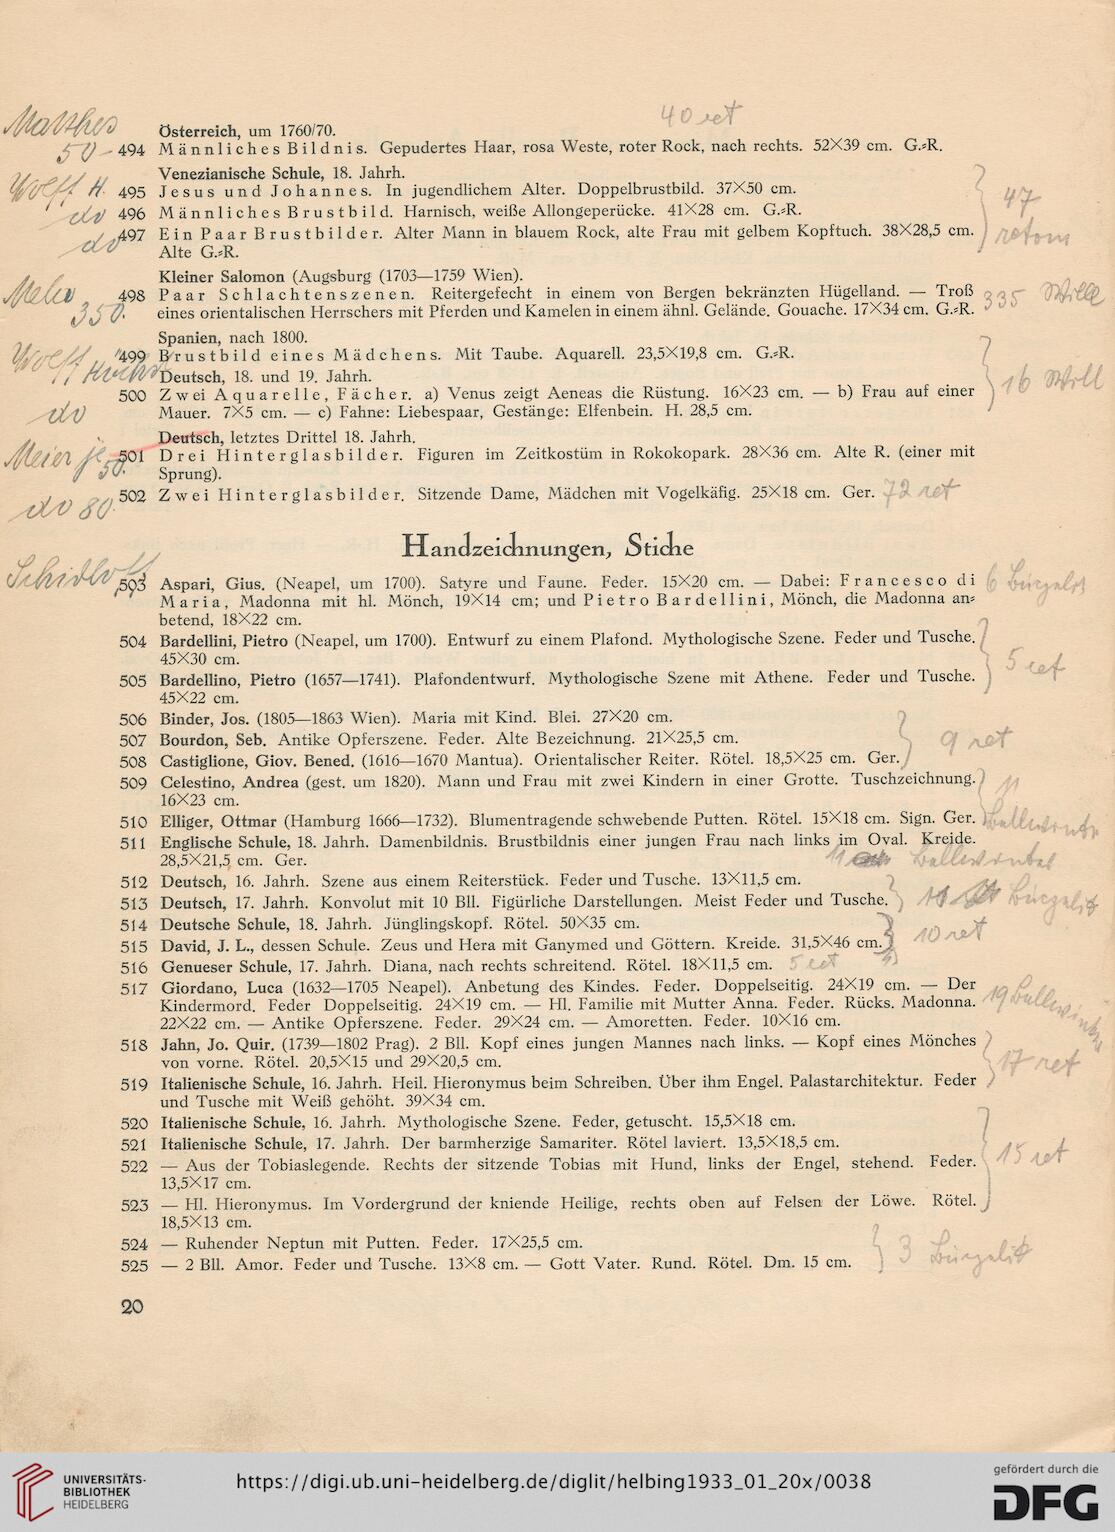 Matthes
40 ret
Österreich, um 1760/70.
50 - 494 Männliches Bildnis. Gepudertes Haar, rosa Weste, roter Rock, nach rechts. 52×39 cm. G.=R.
Venezianische Schule, 18. Jahrh.
Wolff H. 495 Jesus und Johannes. In jugendlichem Alter. Doppelbrustbild. 37×50 cm.
do 496 Männliches Brustbild. Harnisch, weiße Allongeperücke. 41×28 cm. G.=R.
47
do 497 Ein Paar Brustbilder. Alter Mann in blauem Rock, alte Frau mit gelbem Kopftuch. 38×28,5 cm.
Alte G.=R.
Kleiner Salomon (Augsburg (1703—1759 Wien).
498 Paar Schlachtenszenen. Reitergefecht in einem von Bergen bekränzten Hügelland. — Troß
350. eines orientalischen Herrschers mit Pferden und Kamelen in einem ähnl. Gelände. Gouache. 17×34 cm. G.=R. 335 Will
Spanien, nach 1800.
Wolff 499 Brustbild eines Mädchens. Mit Taube. Aquarell. 23,5×19,8 cm. G.=R.
Deutsch, 18. und 19. Jahrh.
16 Will
500 Zwei Aquarelle, Fächer. a) Venus zeigt Aeneas die Rüstung. 16×23 cm. — b) Frau auf einer
do Mauer. 7×5 cm. — c) Fahne: Liebespaar, Gestänge: Elfenbein. H. 28,5 cm.
Deutsch, letztes Drittel 18. Jahrh.
Meier je 50. 501 Drei Hinterglasbilder. Figuren im Zeitkostüm in Rokokopark. 28×36 cm. Alte R. (einer mit
Sprung).
do 80. 502 Zwei Hinterglasbilder. Sitzende Dame, Mädchen mit Vogelkäfig. 25×18 cm. Ger. 72 ret
Handzeichnungen, Stiche
Schidloff
503 Aspari, Gius. (Neapel, um 1700). Satyre und Faune. Feder. 15×20 cm. — Dabei: Francesco di 6
Maria, Madonna mit hl. Mönch, 19×14 cm; und Pietro Bardellini, Mönch, die Madonna an=
betend, 18×22 cm.
504 Bardellini, Pietro (Neapel, um 1700). Entwurf zu einem Plafond. Mythologische Szene. Feder und Tusche.
45×30 cm.
5 ret
505 Bardellino, Pietro (1657—1741). Plafondentwurf. Mythologische Szene mit Athene. Feder und Tusche.
45×22 cm.
506 Binder, Jos. (1805—1863 Wien). Maria mit Kind. Blei. 27×20 cm.
507 Bourdon, Seb. Antike Opferszene. Feder. Alte Bezeichnung. 21×25,5 cm. 9 ret
508 Castiglione, Giov. Bened. (1616—1670 Mantua). Orientalischer Reiter. Rötel. 18,5×25 cm. Ger.
509 Celestino, Andrea (gest. um 1820). Mann und Frau mit zwei Kindern in einer Grotte. Tuschzeichnung. 11
16×23 cm.
510 Elliger, Ottmar (Hamburg 1666—1732). Blumentragende schwebende Putten. Rötel. 15×18 cm. Sign. Ger.
511 Englische Schule, 18. Jahrh. Damenbildnis. Brustbildnis einer jungen Frau nach links im Oval. Kreide.
28,5×21,5 cm. Ger. 11
512 Deutsch, 16. Jahrh. Szene aus einem Reiterstück. Feder und Tusche. 13×11,5 cm.
513 Deutsch, 17. Jahrh. Konvolut mit 10 Bll. Figürliche Darstellungen. Meist Feder und Tusche.
514 Deutsche Schule, 18. Jahrh. Jünglingskopf. Rötel. 50×35 cm.
10 ret
515 David, J. L., dessen Schule. Zeus und Hera mit Ganymed und Göttern. Kreide. 31,5×46 cm.
516 Genueser Schule, 17. Jahrh. Diana, nach rechts schreitend. Rötel. 18×11,5 cm. 5 ret
517 Giordano, Luca (1632—1705 Neapel). Anbetung des Kindes. Feder. Doppelseitig. 24×19 cm. — Der
Kindermord. Feder Doppelseitig. 24×19 cm. — Hl. Familie mit Mutter Anna. Feder. Rücks. Madonna. 19
22×22 cm. — Antike Opferszene. Feder. 29×24 cm. — Amoretten. Feder. 10×16 cm.
518 Jahn, Jo. Quir. (1739—1802 Prag). 2 Bll. Kopf eines jungen Mannes nach links. — Kopf eines Mönches
von vorne. Rötel. 20,5×15 und 29×20,5 cm. 17 ret
519 Italienische Schule, 16. Jahrh. Heil. Hieronymus beim Schreiben. Über ihm Engel. Palastarchitektur. Feder
und Tusche mit Weiß gehöht. 39×34 cm.
520 Italienische Schule, 16. Jahrh. Mythologische Szene. Feder, getuscht. 15,5×18 cm.
521 Italienische Schule, 17. Jahrh. Der barmherzige Samariter. Rötel laviert. 13,5×18,5 cm.
15 ret
522 — Aus der Tobiaslegende. Rechts der sitzende Tobias mit Hund, links der Engel, stehend. Feder.
13,5×17 cm.
523 — Hl. Hieronymus. Im Vordergrund der kniende Heilige, rechts oben auf Felsen der Löwe. Rötel.
18,5×13 cm.
524 — Ruhender Neptun mit Putten. Feder. 17×25,5 cm.
3
525 — 2 Bll. Amor. Feder und Tusche. 13×8 cm. — Gott Vater. Rund. Rötel. Dm. 15 cm.
20
UNIVERSITÄTS-
BIBLIOTHEK
HEIDELBERG
https://digi.ub.uni-heidelberg.de/diglit/helbing1933_01_20x/0038
gefördert durch die
DFG